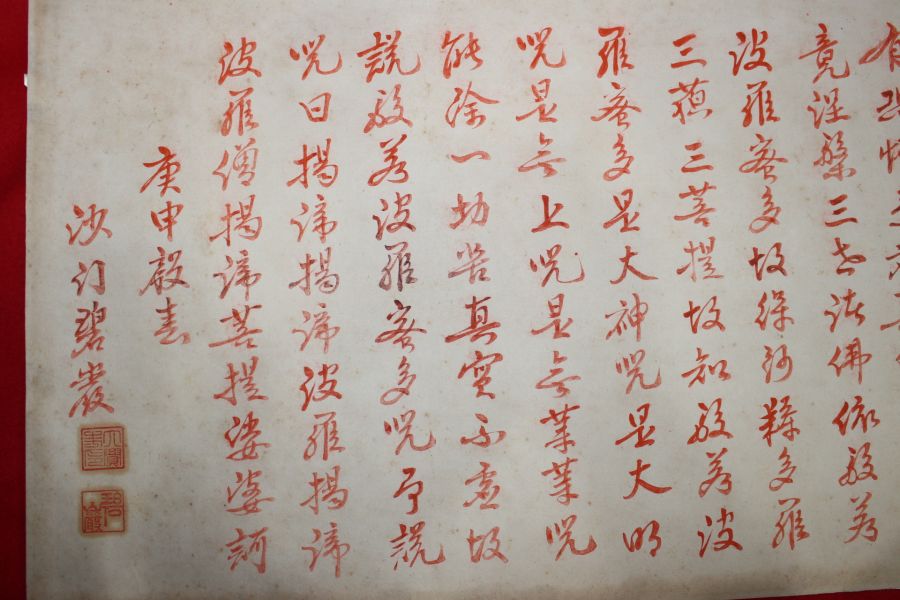 有恐怖
竟涅槃三世諸佛依般若
波羅蜜多故得阿耨多羅
三藐三菩提故知般若波
羅蜜多是大神呪是大明
呪是無上呪是無等等呪
能除一切苦真實不虛故
說般若波羅蜜多呪即說
呪曰揭諦揭諦波羅揭諦
波羅僧揭諦菩提娑婆訶
庚申春
沙門碧巖
碧巖